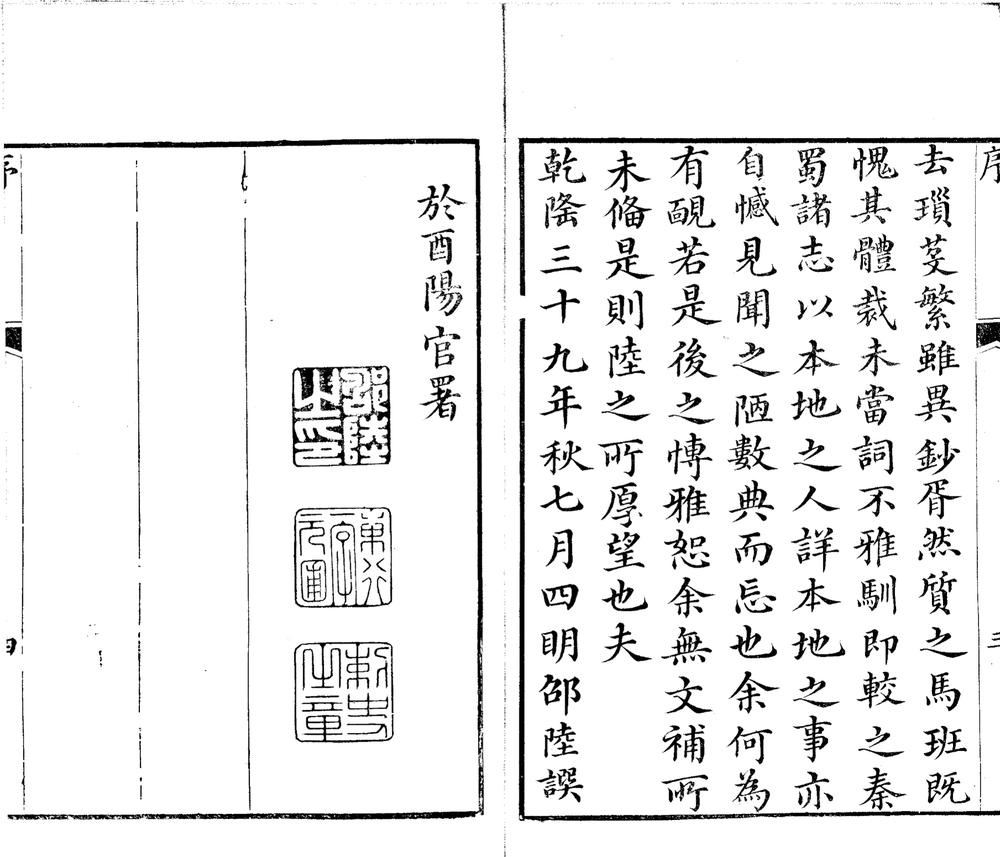 序
三
去瑣芟繁雖異鈔胥然質之馬班既
愧其體裁未當詞不雅馴即較之秦
蜀諸志以本地之人詳本地之事亦
自憾見聞之陋數典而忘也余何為
有靦若是後之愽雅恕余無文補所
未俻是則陸之所厚望也夫
乾隆三十九年秋七月四明邵陸譔
於酉陽官署
邵陸之印
刺史之章
序
四